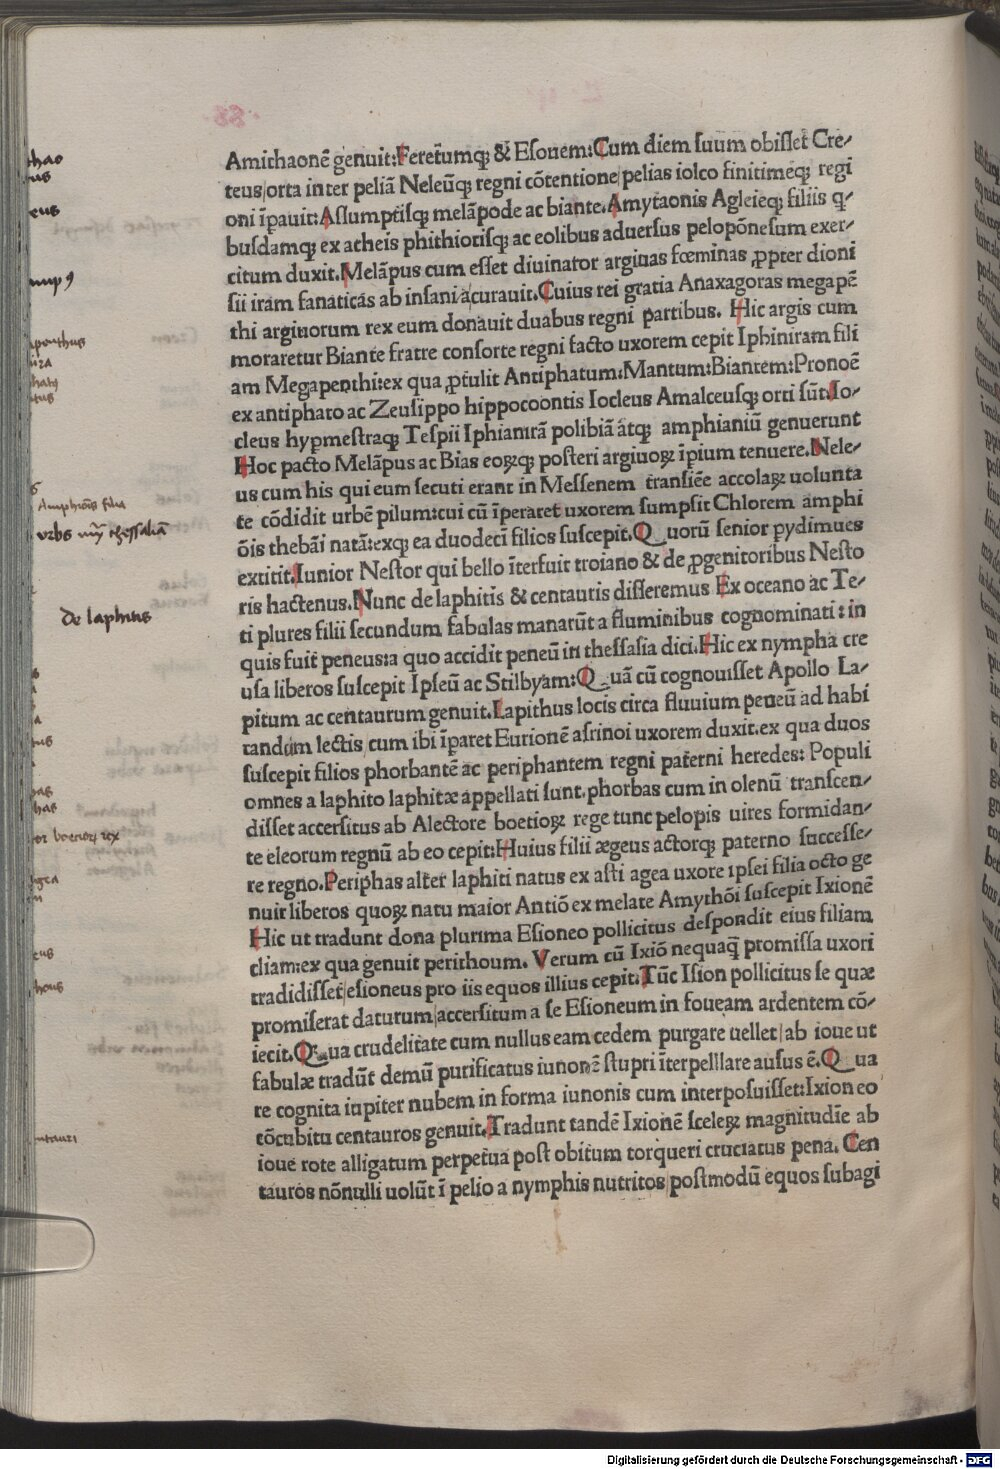 Amithaonē genuit:Feretumq; & Esonem:Cum diem suum obisset Cre/
teus/orta inter peliā Neleūq; regni cōtentione/pelias iolco finitimeq; regi
oni īpauit:Assumptisq; melāpode ac biante.Amytaonis Agleieq; filiis q̄/
busdamq; ex atheis phithiotisq; ac eolibus aduersus pelopōnesum exer/
citum duxit.Melāpus cum esset diuinator arginas fœminas ꝓpter dioni
sii iram fanaticas ab insania curauit.Cuius rei gratia Anaxagoras megapē
thi arginorum rex eum donauit duabus regni partibus. Hic argis cum
moraretur Biante fratre consorte regni facto uxorem cepit Iphiniram fili
am Megapenthi:ex qua ꝓtulit Antiphatum:Mantum:Biantem:Pronoē
ex antiphato ac Zeusippo hippocoontis Iocleus Amalceusq; orti sūt.Io/
cleus hypmestraq; Tespii Iphianirā polibiā atq; amphianiū genuerunt
Hoc pacto Melāpus ac Bias eoꝝq; posteri arginoꝝ īpium tenuere.Nele/
us cum his qui eum secuti erant in Messenem transiēe accolaꝝ uolunta
te cōdidit urbē pilum:cui cū īperaret uxorem sumpsit Chlorem amphi
ōis thebāi natā:exq; ea duodecī filios suscepit.Quorū senior pydimues
extitit.Iunior Nestor qui bello īterfuit troiano & de ꝓgenitoribus Nesto
ris hactenus.Nunc de laphitis & centauris disseremus Ex oceano ac Te/
ti plures filii secundum fabulas manarūt a fluminibus cognominati : in
quis fuit peneus:a quo accidit peneū in thessasia dici.Hic ex nympha cre
usa liberos suscepit Ipseū ac Stilbyam:Quā cū cognouisset Apollo La/
pitum ac centaurum genuit.Lapithus locis circa fluuium peneū ad habi
tandum lectis/cum ibi īparet Eurionē asrinoi uxorem duxit.ex qua duos
suscepit filios phorbantē ac periphantem regni paterni heredes: Populi
omnes a laphito laphitæ appellati sunt.phorbas cum in olenū transcen/
disset accersitus ab Alectore boetioꝝ rege tunc pelopis uires formidan/
te eleorum regnū ab eo cepit:Huius filii ægeus actorq; paterno successe/
re regno.Periphas alter laphiti natus ex asti agea uxore ipsei filia octo ge
nuit liberos quoꝝ natu maior Antiō ex melate Amythōi suscepit Ixionē
Hic ut tradunt dona plurima Esioneo pollicitus despondit eius filiam
cliam:ex qua genuit perithoum. Verum cū Ixiō nequaq̄ promissa uxori
tradidisset/esioneus pro iis equos illius cepit:Tūc Ision pollicitus se quæ
promiserat daturum/accersitum a se Esioneum in foueam ardentem cō/
iecit.Qua crudelitate cum nullus eam cedem purgare uellet/ab ioue ut
fabulæ tradūt demū purificatus iunonē stupri īterpelllare ausus ē.Qua
re cognita iupiter nubem in forma iunonis cum interposuisset:Ixion eo
cōcubitu centauros genuit.Tradunt tandē Ixionē sceleꝝ magnitudīe ab
ioue rote alligatum perpetua post obitum torqueri cruciatus pena. Cen
tauros nōnulli uolūt ī pelio a nymphis nutritos/postmodū equos subagi
Amphiōis filia
urbs in thessalia
de laphitis
Digitalisierung gefördert durch die Deutsche Forschungsgemeinschaft - DFG